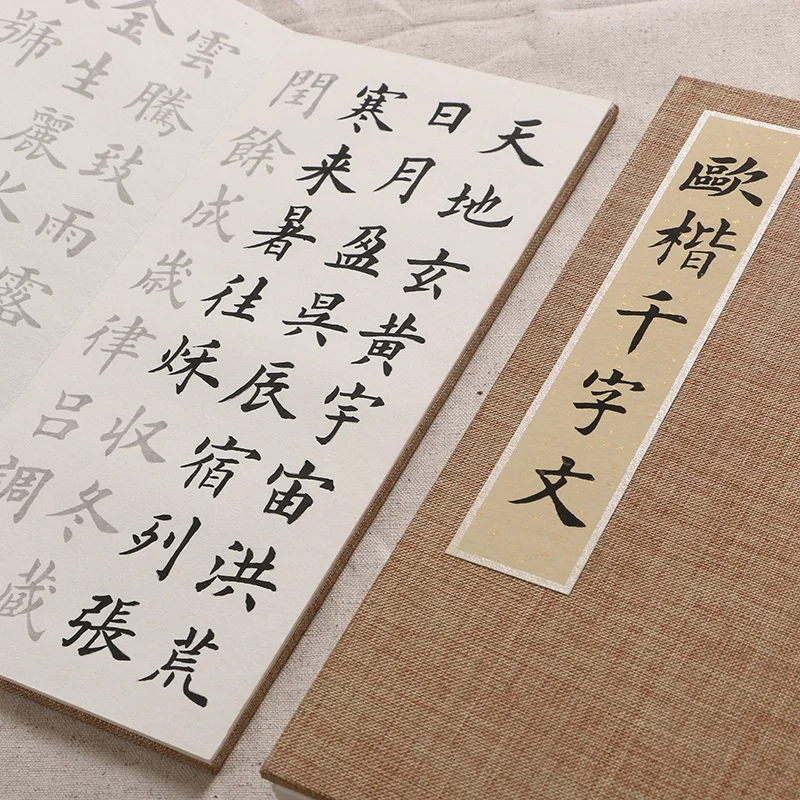 天地玄黄宇宙洪荒
日月盈昃辰宿列張
寒来暑往秋收冬藏
閏餘成歳律吕調
雲騰致雨露
金生麗水
號
歐楷千字文